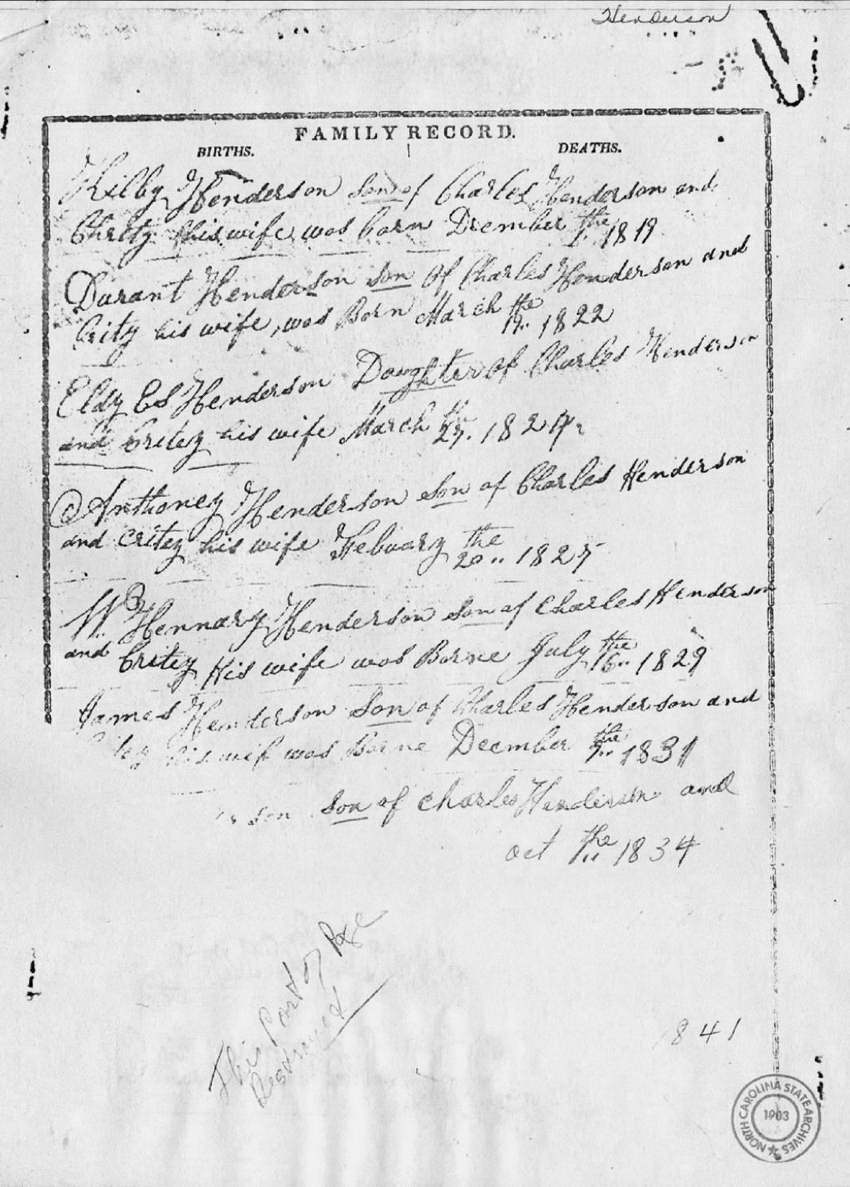 Henderson
FAMILY RECORD.
BIRTHS. DEATHS.
Kilby Henderson son of Charles Henderson and
Critz his wife was born Dcember the 1819
Durant Henderson son of Charles Henderson and
Crity his wife, was Born March the 1822
Henderson Daughter of Charles Henderson
and Critey his wife March th 1824
Anthoney Henderson son of Charles Henderson
and Critey his wife Febuary the 20 1827
Wm Hennary Henderson son of Charles Henderson
and Critey His wife was Borne July the 16 1829
James Henderson Son of Charles Henderson and
his wif was Borne Decmber the 1831
son Son of Charles Henderson and
oct the 1834
This part of Page
Destroyed
841
NORTH CAROLINA STATE ARCHIVES
1903